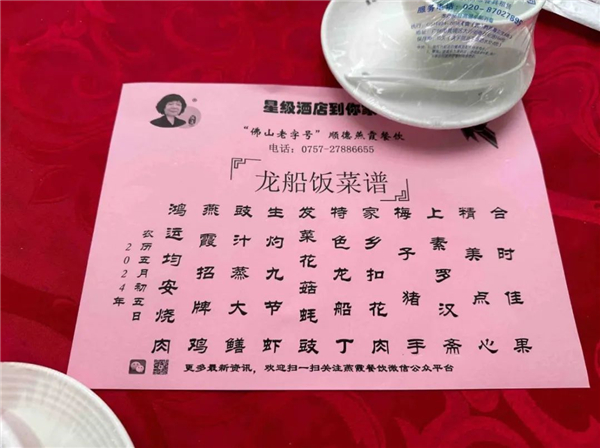 星级酒店到你家
“佛山老字号”顺德燕霞餐饮
电话：0757-27886655
龙船饭菜谱
2024年
农历五月初五日
鸿运均安烧肉
燕霞招牌鸡
豉汁蒸大鳝
生灼九节虾
发菜花菇蚝豉
特色龙船丁
家乡扣花肉
梅子猪手
上素罗汉斋
精美点心
合时佳果
更多最新资讯，欢迎扫一扫关注燕霞餐饮微信公众平台